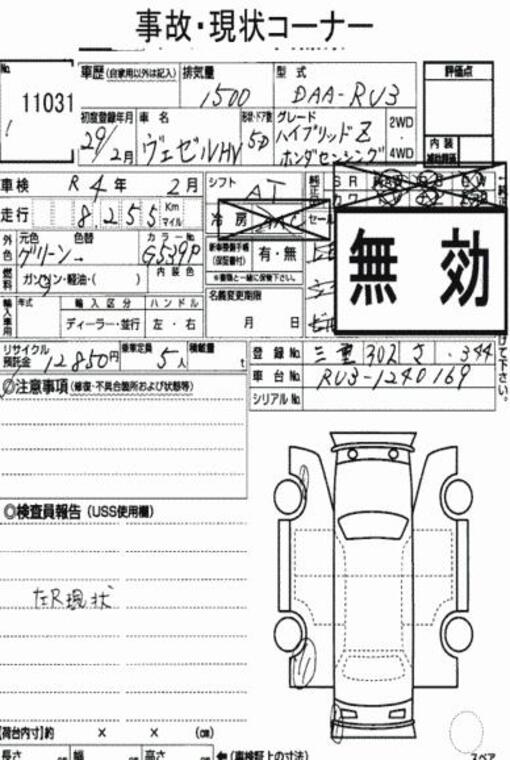 事故・現状コーナー
No. 車歴 (自家用以外は記入) 排気量 型式 評価点
11031 1500 DAA-RU3
初度登録年月 車名 形状・ドア数 グレード 2WD
29/2月 ヴェゼルHV 5D ハイブリッドZ ・ 内装
ホンダセンシング 4WD 補助評価
車検 R4年 2月 シフト AT 純正 SR
走行 8,255 Km マイル 冷房 AAC セール
外色 元色 色替 カラーNo 新車整備手帳 (保証書付) 有・無 無効
グリーン→ G539P
燃料 ガソリン・軽油・( ) 内装色 ※書類と一緒に保管下さい。
輸入車用 年式 輸入区分 ハンドル 名義変更期限
ディーラー・並行 左・右 月 日
リサイクル預託金 12850円 乗車定員 5人 積載量 t 登録No. 三重 302 さ ・344
◎注意事項 (修復・不具合箇所および状態等) 車台No. RU3-1240169
シリアルNo.
◎検査員報告 (USS使用欄)
左R現状
【荷台内寸】約 × × (cm)
長さ cm 幅 cm 高さ cm ←(車検証上の寸法) スペア